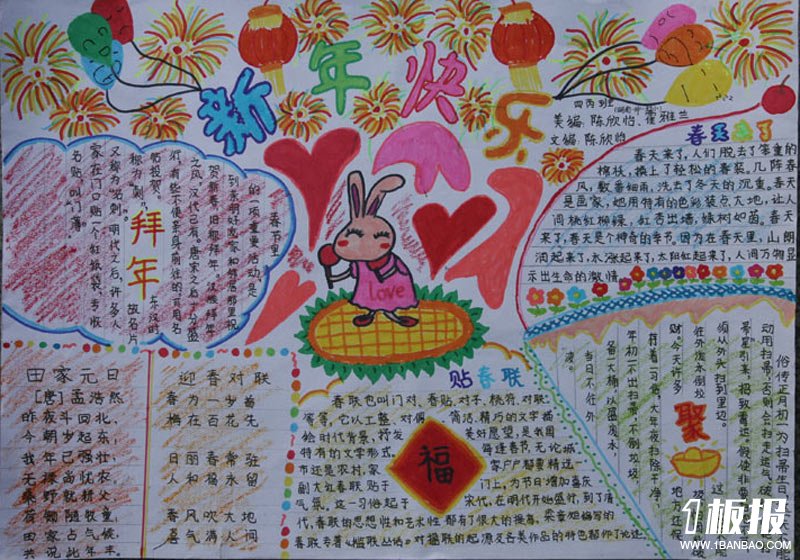 新年快乐
四丙班
美编:陈欣怡、崔雅兰
文编:陈欣怡
春天来了
春天来了,人们脱去了笨重的
棉袄,换上了轻松的春装。几阵春
风,数番细雨,洗去了冬天的沉重。春天
是画家,她用特有的色彩装点大地,让人
间桃红柳绿,红杏出墙,妹树如茵。春天
来了,春天是个神奇的季节,因为在春天里,山朗
润起来了,水涨起来了,太阳红起来了,人间万物显
示出生命的激情。
拜年
春节里
的一项重要活动是
到亲朋好友家和邻居那里祝
贺新春,旧称拜年。汉族拜年
之风,汉代已有。唐宋之后十分盛
行,有些不便亲身前往的,可用名
帖投贺。东汉时
称为“刺”,故名片
又称“名刺”。明代之后,许多人
家在门口贴一个红纸袋,专收
名帖,叫“门簿”。
love
田家元日
[唐]孟浩然
昨夜斗回北,
今朝岁起东;
我年已强壮,
无禄尚忧农。
桑野就耕父,
荷锄随牧童;
田家占气候,
共说此年丰。
迎春对联
春为一岁首
梅在百花先
日丽春常驻
人和福永留
春风吹大地
喜气满人间
贴春联
春联也叫门对、春贴、对子、桃符、对联
等等,它以工整、对偶、简洁、精巧的文字描
绘时代背景,抒发美好愿望,是我国
特有的文学形式。每逢春节,无论城
市还是农村,家家户户都要精选一
副大红春联贴于门上,为节日增加喜庆
气氛。这一习俗起于宋代,在明代开始盛行,到了清
代,春联的思想性和艺术性都有了很大的提高,梁章矩编写的
春联专著《槛联丛话》对楹联的起源及各类作品的特色都作了论述。
福
聚
俗传正月初一为扫帚生日,
动用扫帚,否则会扫走运气、破财
帚星引来,招致霉运。假使非
须从外头扫到里边。
往外泼水倒垃
财,今天许多
符着一习俗,大年夜扫除干净,
年初一不出扫帚,不倒垃圾,
备一大桶,以盛废水,
当日不往外
泼。
1板报
WWW.1BANBAO.COM